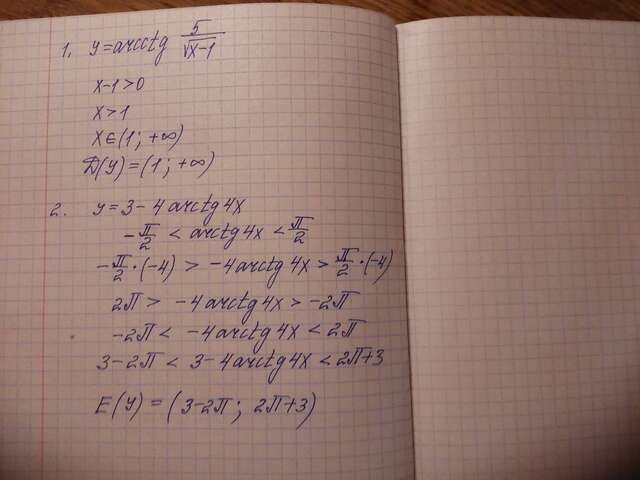 1. y=arcctg 5/√x-1
x-1>0
x>1
x∈(1; +∞)
D(y)=(1; +∞)
2. y=3-4arctg4x
-π/2 < arctg4x < π/2
-π/2·(-4) > -4arctg4x > π/2·(-4)
2π > -4arctg4x > -2π
-2π < -4arctg4x < 2π
3-2π < 3-4arctg4x < 2π+3
E(y) = (3-2π; 2π+3)